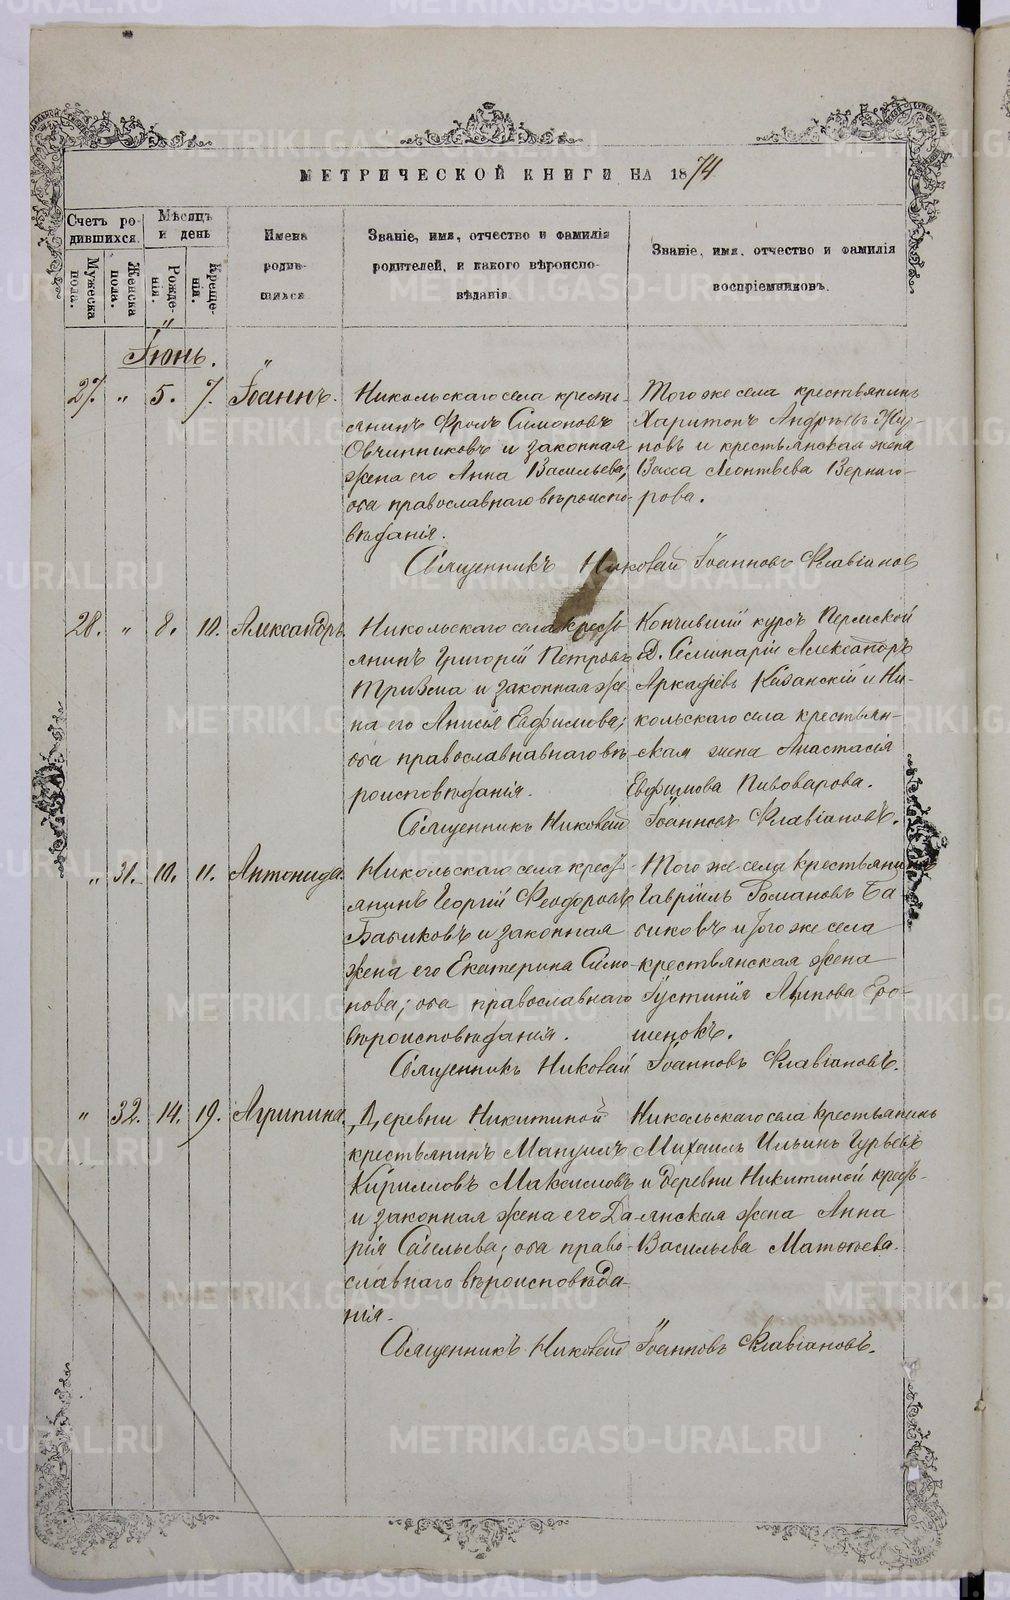 МЕТРИЧЕСКОЙ КНИГИ НА 1874
Счетъ ро-
дившихся.
Мѣсяцъ
и день
Мужеска
пола.
Женска
пола.
Рожде-
нія.
Креще-
нія.
Имена
родив-
шихся
Званіе, имя, отчество и фамилія
родителей, и какого вѣроиспо-
вѣданія.
Званіе, имя, отчество и фамилія
воспріемниковъ.
Іюнь.
27. " 5. 7. Іоаннъ.
Никольскаго села кресть-
янинъ Фролъ Симоновъ
Овчинниковъ и законная
жена его Анна Васильева,
оба православнаго вѣроиспо-
вѣданія.
Того же села крестьянинъ
Харитонъ Андреевъ
новъ и крестьянская жена
Васса Леонтьева Верниго-
рова.
Священникъ Николай Іоанновъ Флавіановъ
28. " 8. 10. Александръ.
Никольскаго села крест-
янинъ Григорій Петровъ
и законная же-
на его Анисія Евфимова;
оба православнавнаго вѣ-
роисповѣданія.
Кончившій курсъ Пермской
Д. Семинаріи Александръ
Аркадіевъ Казанскій и Ни-
кольскаго села крестьян-
ская жена Анастасія
Евфимова Пивоварова.
Священникъ Николай Іоанновъ Флавіановъ.
" 31. 10. 11. Антонида.
Никольскаго села крест-
янинъ Георгій Феодоровъ
Бабиковъ и законная
жена его Екатерина Симо-
нова; оба православнаго
вѣроисповѣданія.
Того же села крестьянинъ
Гавріилъ Романовъ Ба-
биковъ и того же села
крестьянская жена
Іустинія Архипова Еро-
шенокъ.
Священникъ Николай Іоанновъ Флавіановъ.
" 32. 14. 19. Агрипина.
Деревни Никитиной
крестьянинъ Мануилъ
Кирилловъ Максимовъ
и законная жена его Да-
рія Савельева; оба право-
славнаго вѣроисповѣда-
нія.
Никольскаго села крестьянинъ
Михаилъ Ильинъ Гурьевъ
и деревни Никитиной крест-
янская жена Анна
Васильева Матвѣева.
Священникъ Николай Іоанновъ Флавіановъ.
METRIKI.GASO-URAL.RU